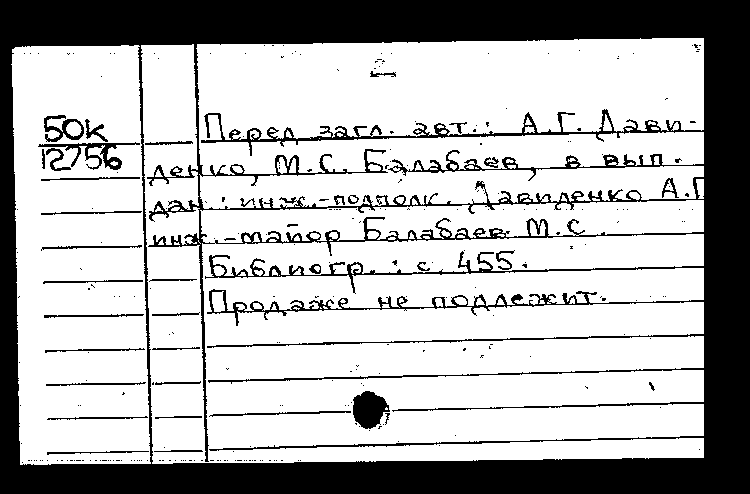 2
50К
12756
Перед загл. авт.: А.Г. Дави-
денко, М.С. Балабаев, в вып.
дан.: инж.-подполк. Давиденко А.Г
инж.-майор Балабаев М.С.
Библиогр.: с. 455.
Продаже не подлежит.